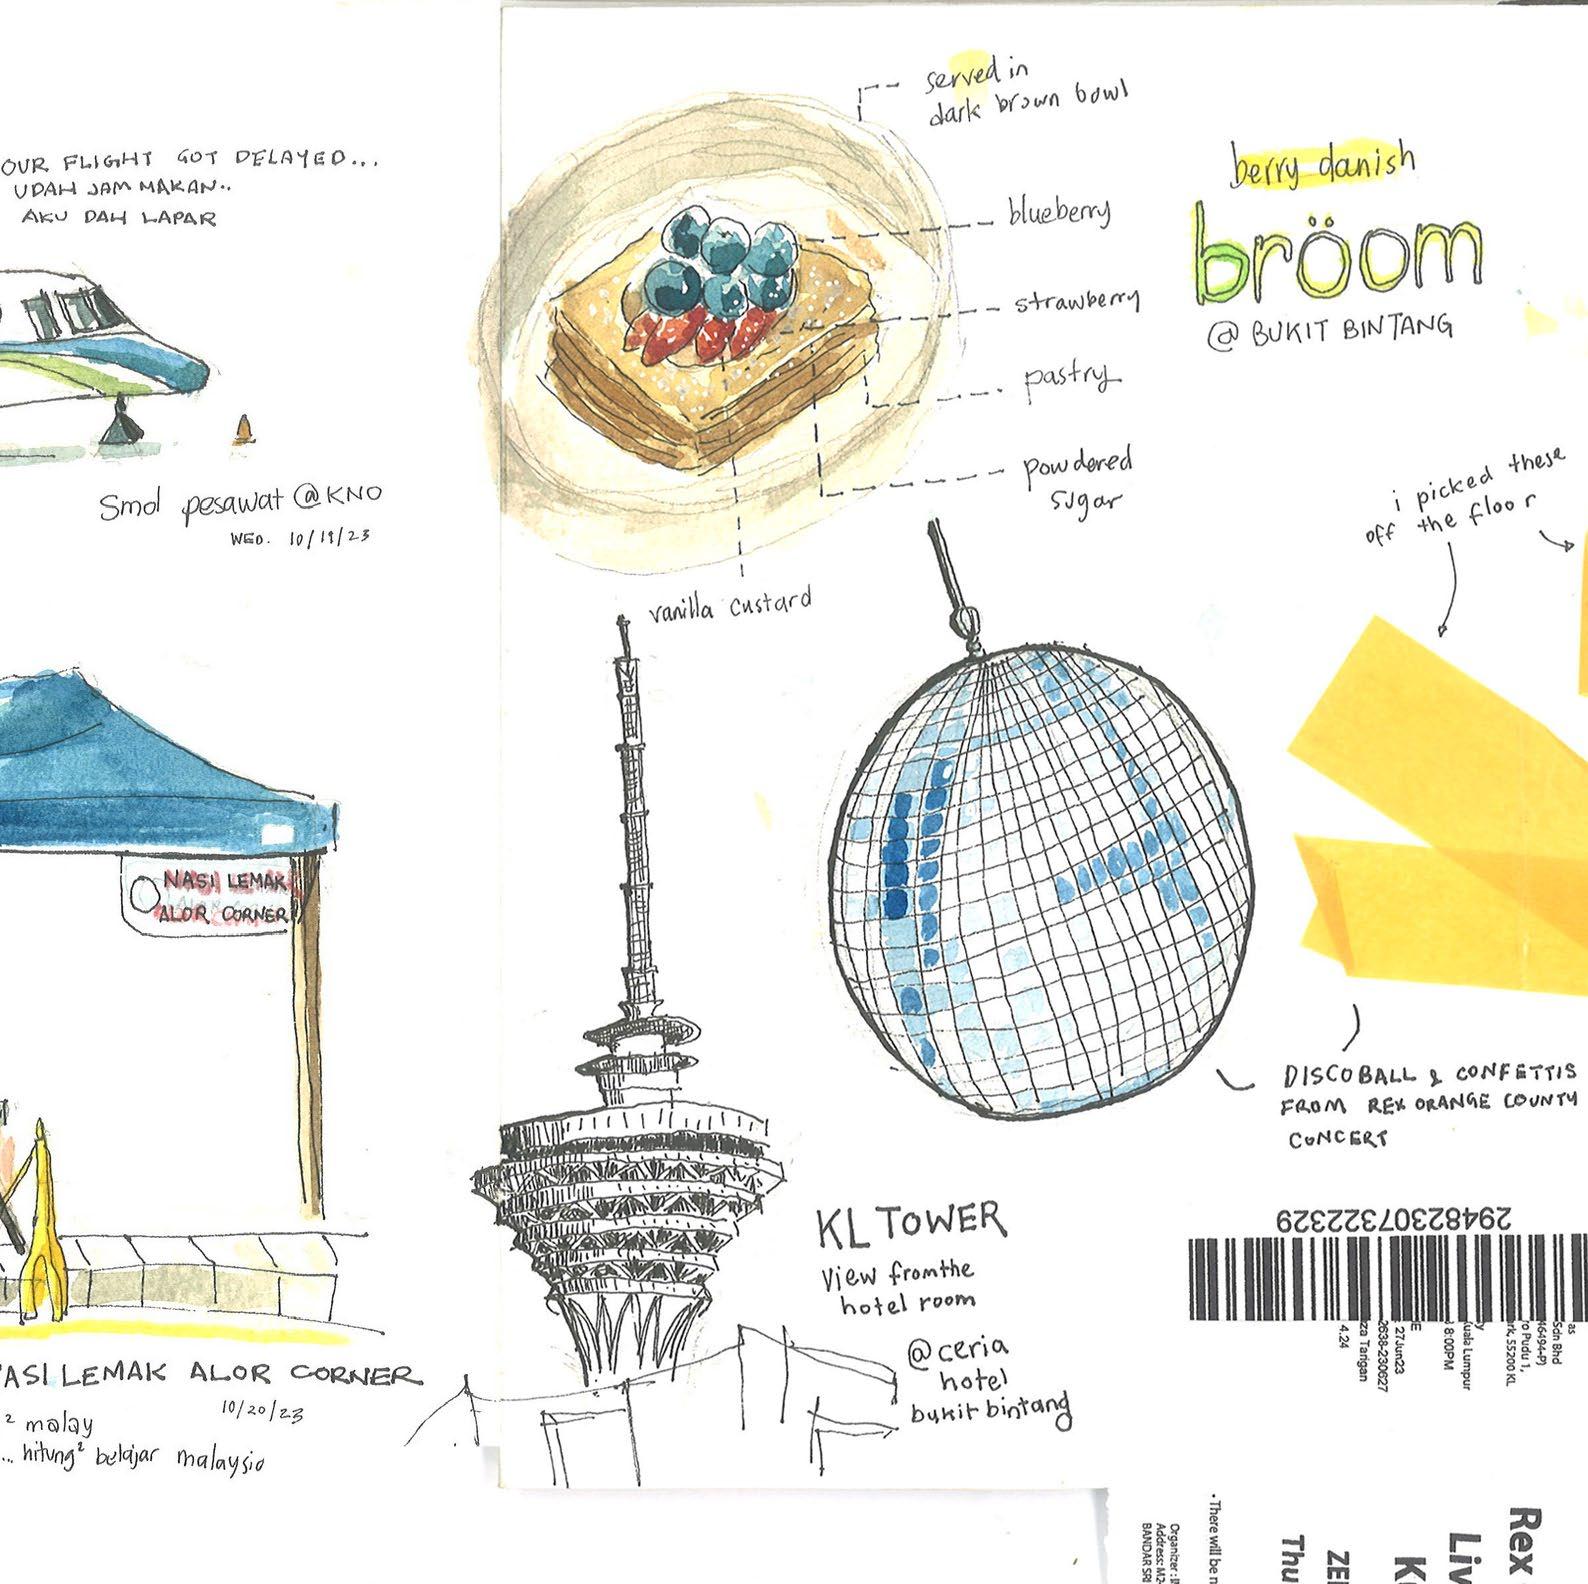 OUR FLIGHT GOT DELAYED...
UDAH JAM MAKAN..
AKU DAH LAPAR
Smol pesawat @ KNO
WED. 10/19/23
NASI LEMAK
ALOR CORNER
ASI LEMAK ALOR CORNER
10/20/23
² malay
... hitung² belajar malaysia
served in
dark brown bowl
blueberry
strawberry
pastry
powdered
sugar
vanilla custard
berry danish
bröom
@ BUKIT BINTANG
i picked these
off the floor
DISCO BALL & CONFETTIS
FROM REX ORANGE COUNTY
CONCERT
KL TOWER
View from the
hotel room
@ceria
hotel
bukit bintang
29482307322329
as
Sdn Bhd
46494-P)
o Pudu 1,
rk, 55200 KL
uala Lumpur
8:00PM
27Jun23
2638-230627
za Tarigan
4.24
Rex
Liv
K
ZE
Thu
• There will be n
Organizer : I
Address: M2-
BANDAR SRI